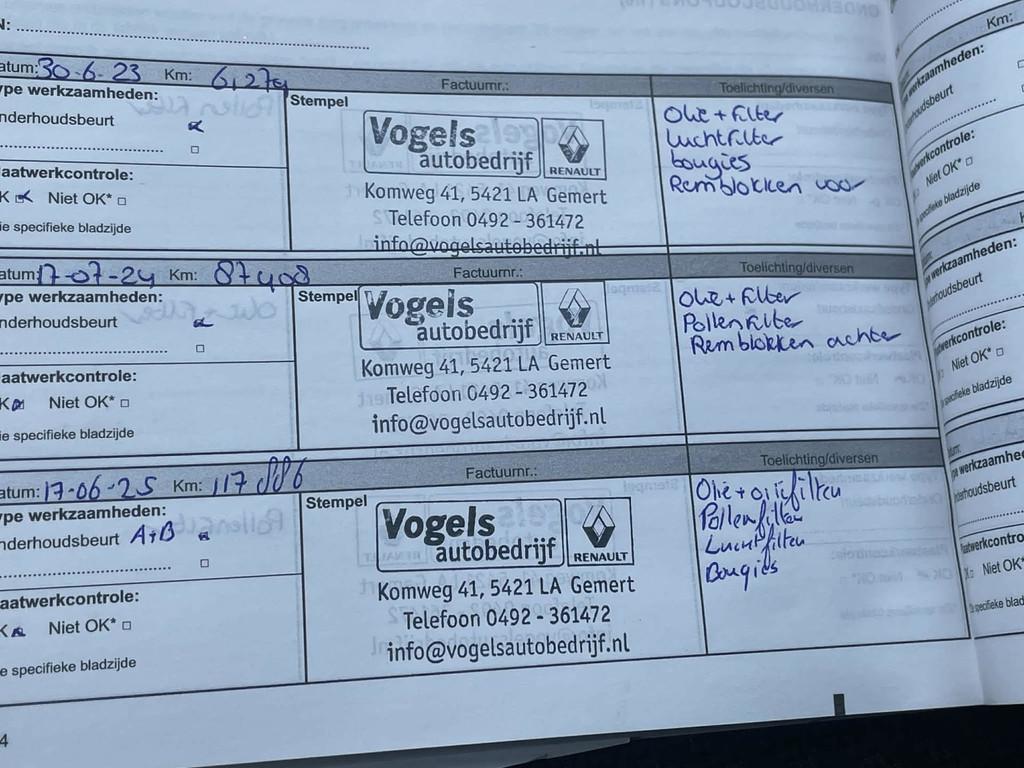 ONDERHOUDSCOUPONS
N:
atum: 30-6-23 Km: 6,279 Factuurnr.: Toelichting/diversen
ype werkzaamheden:
nderhoudsbeurt
aatwerkcontrole:
K Niet OK*
ie specifieke bladzijde
Stempel
Vogels
autobedrijf
RENAULT
Komweg 41, 5421 LA Gemert
Telefoon 0492 - 361472
info@vogelsautobedrijf.nl
Olie + filter
Luchtfilter
bougies
Remblokken voor
atum: 17-07-24 Km: 87408 Factuurnr.: Toelichting/diversen
ype werkzaamheden:
nderhoudsbeurt
aatwerkcontrole:
K Niet OK*
ie specifieke bladzijde
Stempel
Vogels
autobedrijf
RENAULT
Komweg 41, 5421 LA Gemert
Telefoon 0492 - 361472
info@vogelsautobedrijf.nl
Olie + filter
Pollenfilter
Remblokken achter
atum: 17-06-25 Km: 117886 Factuurnr.: Toelichting/diversen
ype werkzaamheden:
nderhoudsbeurt A+B
aatwerkcontrole:
K Niet OK*
ie specifieke bladzijde
Stempel
Vogels
autobedrijf
RENAULT
Komweg 41, 5421 LA Gemert
Telefoon 0492 - 361472
info@vogelsautobedrijf.nl
Olie + oliefilter
Pollenfilter
Luchtfilter
Bougies
4
Km:
werkzaamheden:
erhoudsbeurt
werkcontrole:
Niet OK*
specifieke bladzijde
werkzaamheden:
erhoudsbeurt
twerkcontrole:
Niet OK*
specifieke bladzijde
tum:
werkzaamhede
derhoudsbeurt
aatwerkcontro
Niet OK*
specifieke blad